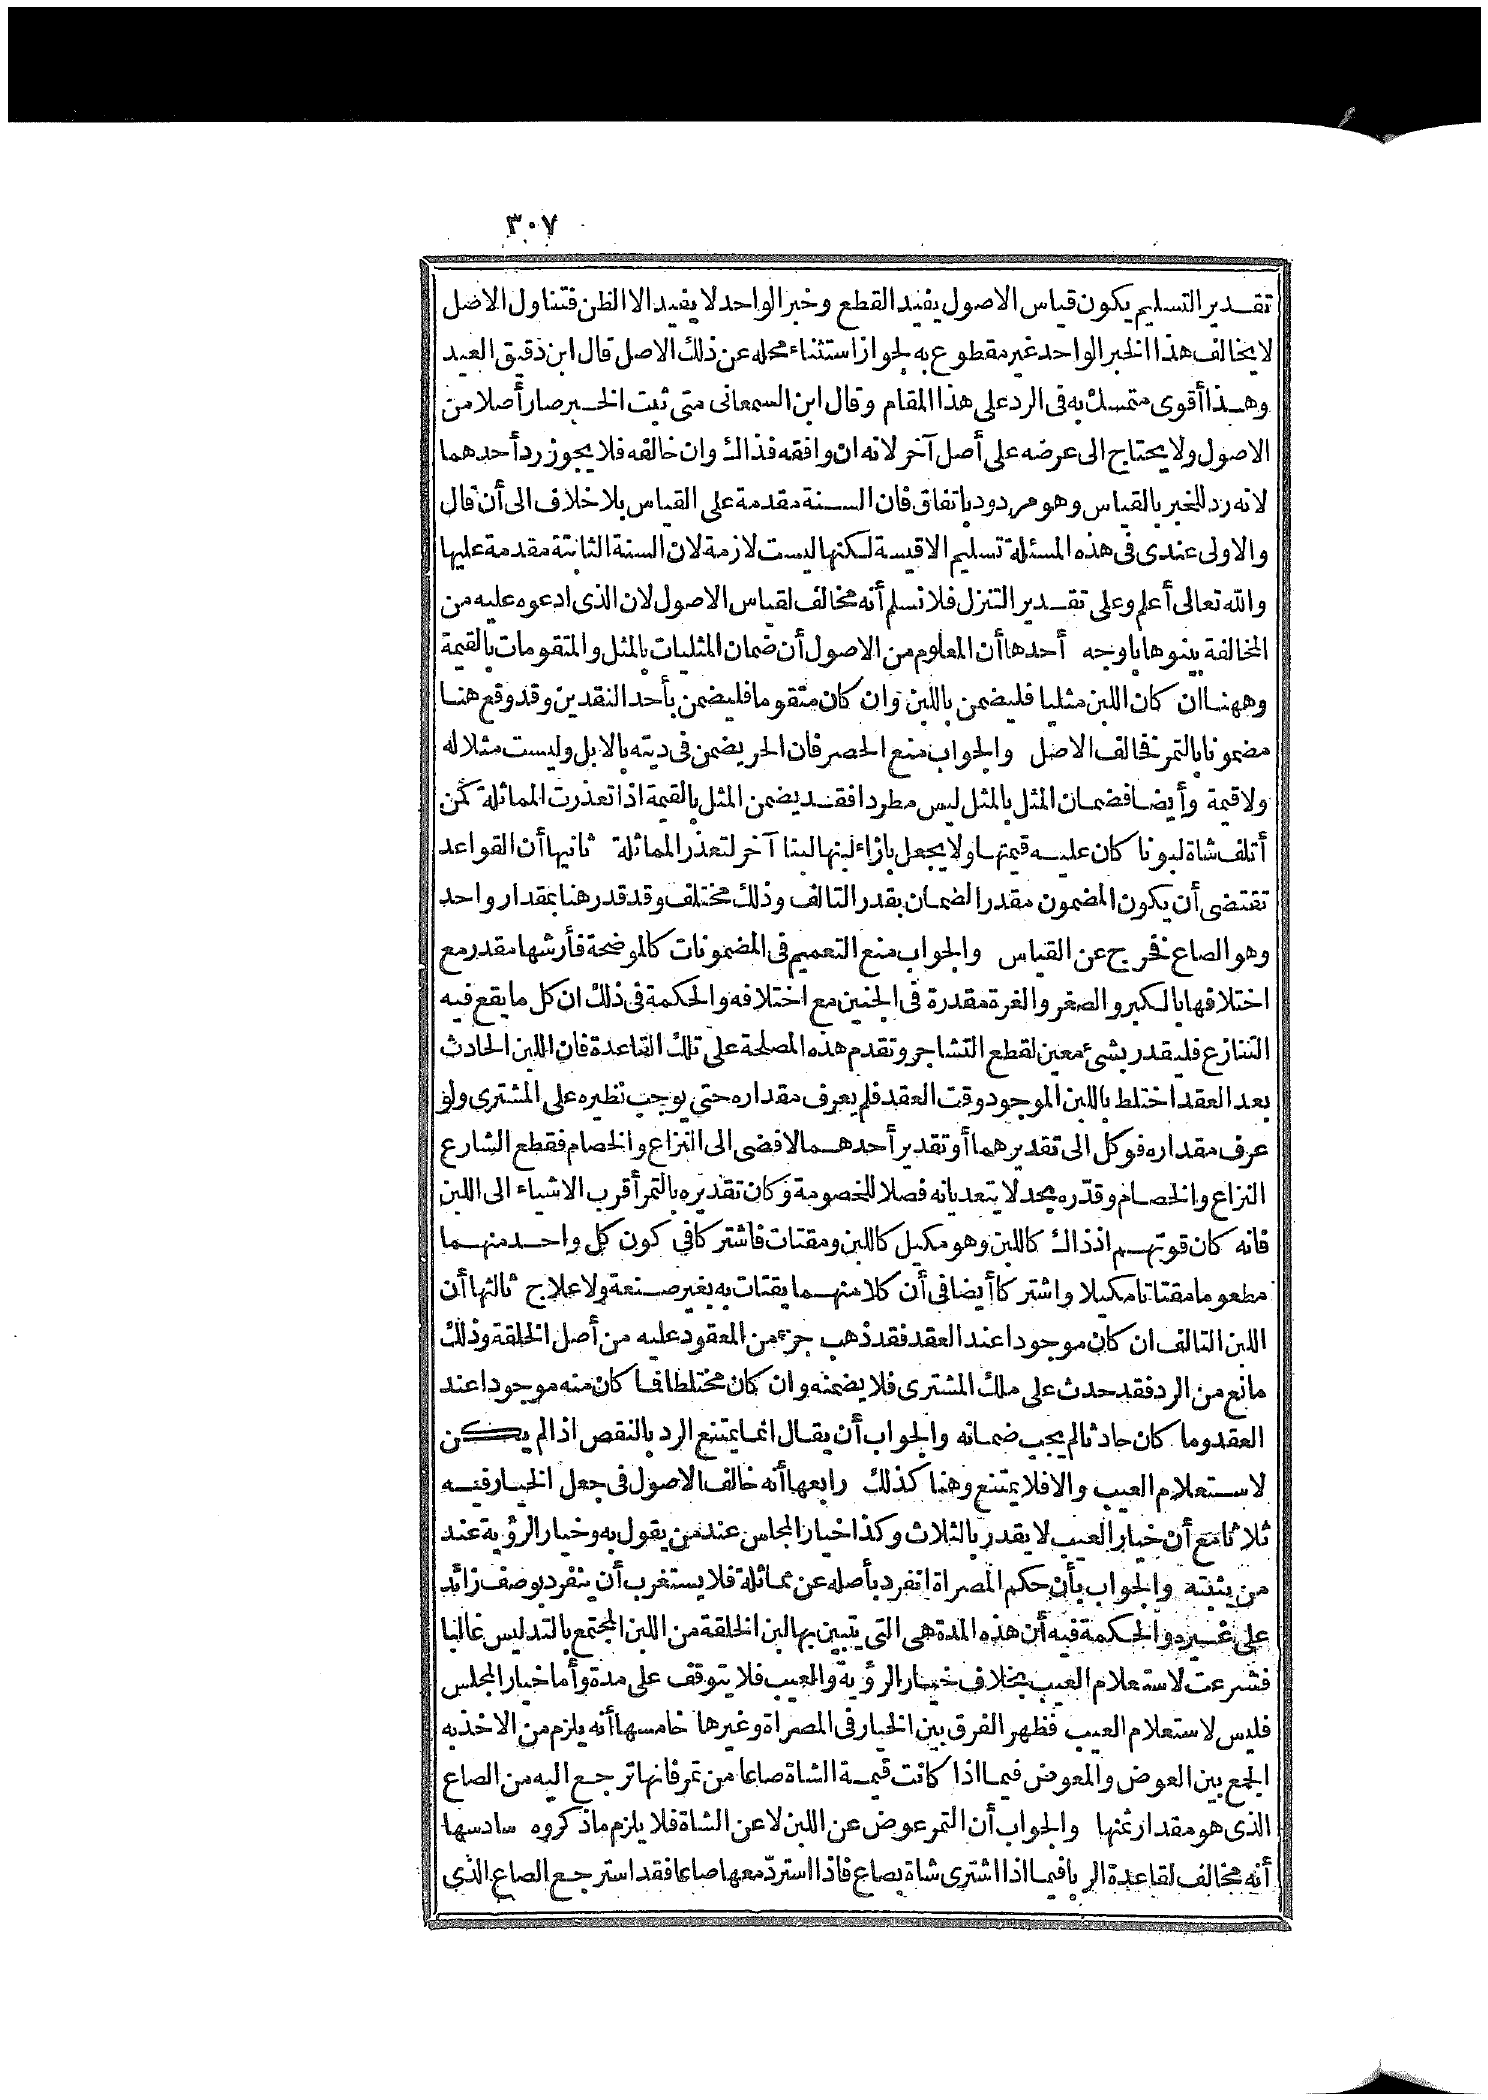 ٣٠٧
تقدير التسليم يكون قياس الاصول يفيد القطع وخبر الواحد لا يفيد الا الظن فتناول الاصل
لا يخالف هذا الخبر الواحد غير مقطوع به لجواز استثناء محله عن ذلك الاصل قال ابن دقيق العيد
وهذا أقوى متمسك به فى الرد على هذا المقام وقال ابن السمعانى متى ثبت الخبر صار أصلا من
الاصول ولا يحتاج الى عرضه على أصل آخر لانه ان وافقه فذاك وان خالفه فلا يجوز رد أحدهما
لانه رد للخبر بالقياس وهو مردود باتفاق فان السنة مقدمة على القياس بلا خلاف الى أن قال
والاولى عندى فى هذه المسئلة تسليم الاقيسة لكنها ليست لازمة لان السنة الثابتة مقدمة عليها
والله تعالى أعلم وعلى تقدير التنزل فلا نسلم أنه مخالف لقياس الاصول لان الذى ادعوه عليه من
المخالفة بينوها باوجه أحدها أن المعلوم من الاصول أن ضمان المثليات بالمثل والمتقومات بالقيمة
وههنا ان كان اللبن مثليا فليضمن باللبن وان كان متقوما فليضمن بأحد النقدين وقد وقع هنا
مضمونا بالتمر فخالف الاصل والجواب منع الحصر فان الحر يضمن فى ديته بالابل وليست مثلا له
ولا قيمة وأيضا فضمان المثل بالمثل ليس مطردا فقد يضمن المثل بالقيمة اذا تعذرت المماثلة كمن
أتلف شاة لبونا كان عليه قيمتها ولا يجعل بازاء لبنها لبنا آخر لتعذر المماثلة ثانيها أن القواعد
تقتضى أن يكون المضمون مقدر الضمان بقدر التالف وذلك مختلف وقد قدر هنا بمقدار واحد
وهو الصاع فخرج عن القياس والجواب منع التعميم فى المضمونات كالموضحة فأرشها مقدر مع
اختلافها بالكبر والصغر والغرة مقدرة فى الجنين مع اختلافه والحكمة فى ذلك ان كل ما يقع فيه
التنازع فليقدر بشئ معين لقطع التشاجر وتقدم هذه المصلحة على تلك القاعدة فان اللبن الحادث
بعد العقد اختلط باللبن الموجود وقت العقد فلم يعرف مقداره حتى يوجب نظيره على المشترى ولو
عرف مقداره فوكل الى تقديرهما أو تقدير أحدهما لافضى الى النزاع والخصام فقطع الشارع
النزاع والخصام وقدّره بحد لا يتعديانه فصلا للخصومة وكان تقديره بالتمر أقرب الاشياء الى اللبن
فانه كان قوتهم اذ ذاك كاللبن وهو مكيل كاللبن ومقتات فاشتركا فى كون كل واحد منهما
مطعوما مقتاتا مكيلا واشتركا أيضا فى أن كلا منهما يقتات به بغير صنعة ولا علاج ثالثها أن
اللبن التالف ان كان موجودا عند العقد فقد ذهب جزء من المعقود عليه من أصل الخلقة وذلك
مانع من الرد فقد حدث على ملك المشترى فلا يضمنه وان كان مختلطا فما كان منه موجودا عند
العقد وما كان حادثا لم يجب ضمانه والجواب أن يقال انما يمتنع الرد بالنقص اذا لم يكن
لاستعلام العيب والا فلا يمتنع وهنا كذلك رابعها أنه خالف الاصول فى جعل الخيار فيه
ثلاثا مع أن خيار العيب لا يقدر بالثلاث وكذا خيار المجلس عند من يقول به وخيار الرؤية عند
من يثبته والجواب بأن حكم المصراة انفرد بأصله عن مماثلة فلا يستغرب أن ينفرد بوصف زائد
على غيره والحكمة فيه أن هذه المدة هى التى يتبين بها لبن الخلقة من اللبن المجتمع بالتدليس غالبا
فشرعت لاستعلام العيب بخلاف خيار الرؤية والعيب فلا يتوقف على مدة وأما خيار المجلس
فليس لاستعلام العيب فظهر الفرق بين الخيار فى المصراة وغيرها خامسها أنه يلزم من الاخذ به
الجمع بين العوض والمعوض فيما اذا كانت قيمة الشاة صاعا من تمر فانها ترجع اليه من الصاع
الذى هو مقدار ثمنها والجواب أن التمر عوض عن اللبن لا عن الشاة فلا يلزم ما ذكروه سادسها
أنه مخالف لقاعدة الربا فيما اذا اشترى شاة بصاع فاذا استردّ معها صاعا فقد استرجع الصاع الذى